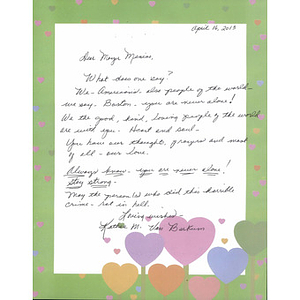 April 16, 2013
Dear Mayor Menino,
What does one say?
We - Americans - also people of the world -
we say. Boston - you are never alone!
We the good, kind, loving people of the world
are with you. Heart and soul -
You have our thoughts, prayers and most
of all - our love.
Always know - you are never alone!
Stay strong -
May the person(s) who did this horrible
crime - rot in hell.
Loving wishes -
M. Van